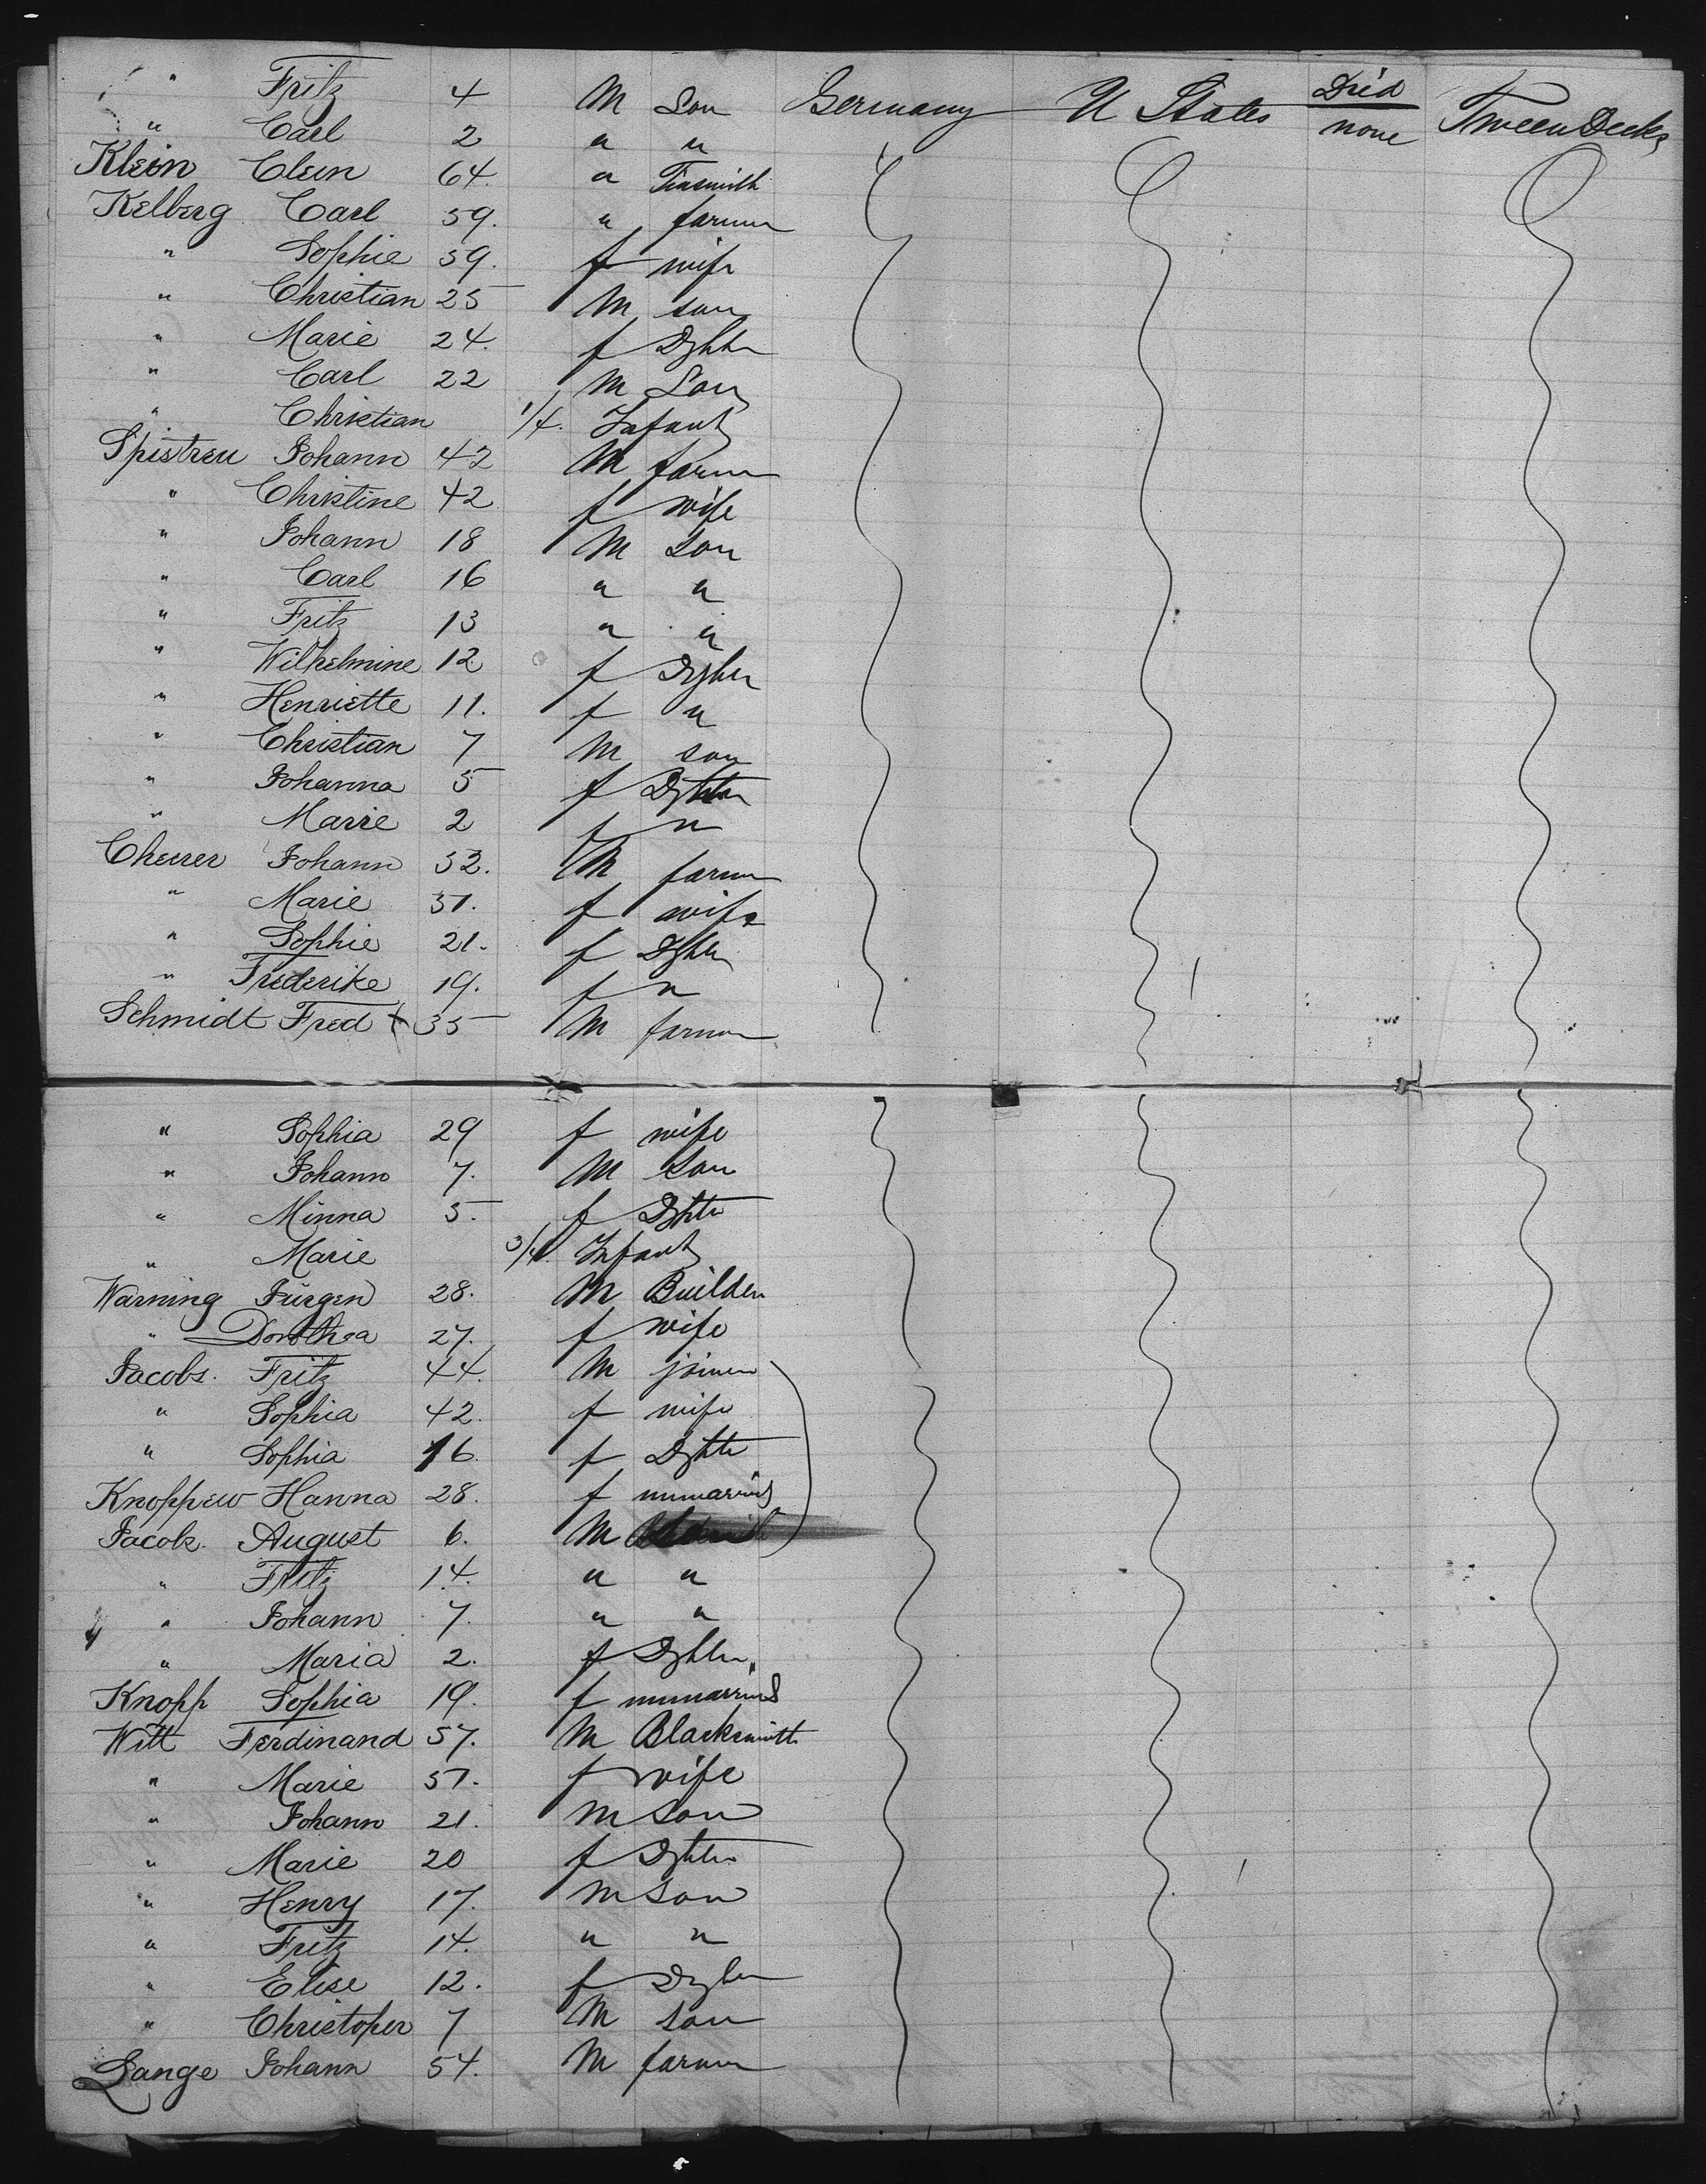 " Fritz 4 M Son Germany U States Died none Tween Decks
" Carl 2 " "
Klein Clein 64. " Tinsmith
Kelberg Carl 59. " farmer
" Sophie 59. f wife
" Christian 25 M son
" Marie 24. f Dghter
" Carl 22 M Son
" Christian 1/4. Infant
Spistreu Johann 42 M farmer
" Christine 42 f wife
" Johann 18 M Son
" Carl 16 " "
" Fritz 13 " "
" Wilhelmine 12 f Dghter
" Henriette 11. f "
" Christian 7 M son
" Johanna 5 f Dghter
" Marie 2 f "
Cheurer Johann 52. M farmer
" Marie 51. f wife
" Sophie 21. f Dghter
" Frederike 19. f "
Schmidt Fred 35 M farmer
" Sophia 29 f wife
" Johann 7. M Son
" Minna 5. f Dghter
" Marie 3/4. Infant
Warning Jürgen 28. M Builder
" Dorothea 27. f wife
Jacobs. Fritz 44. M joiner
" Sophia 42. f wife
" Sophia 16. f Dghter
Knoppew Hanna 28. f unmarried
Jacobs. August 6. M
" Fritz 14. " "
" Johann 7. " "
" Maria 2. f Dghter
Knopp Sophia 19. f unmarried
Witt Ferdinand 57. M Blacksmith
" Marie 51. f wife
" Johann 21. M Son
" Marie 20 f Dghter
" Henry 17. M Son
" Fritz 14. " "
" Elise 12. f Dghter
" Christoper 7 M Son
Lange Johann 54. M farmer